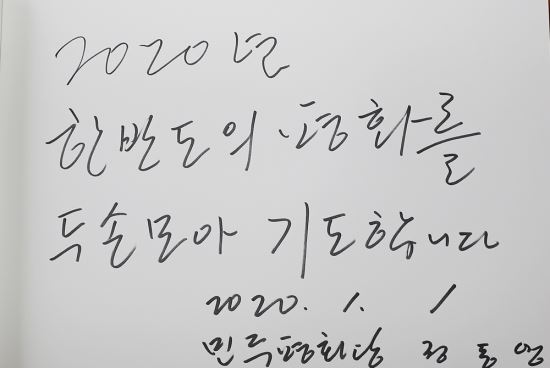 2020년
한반도의 평화를
두손모아 기도합니다
2020. 1. 1
민주평화당 정동영